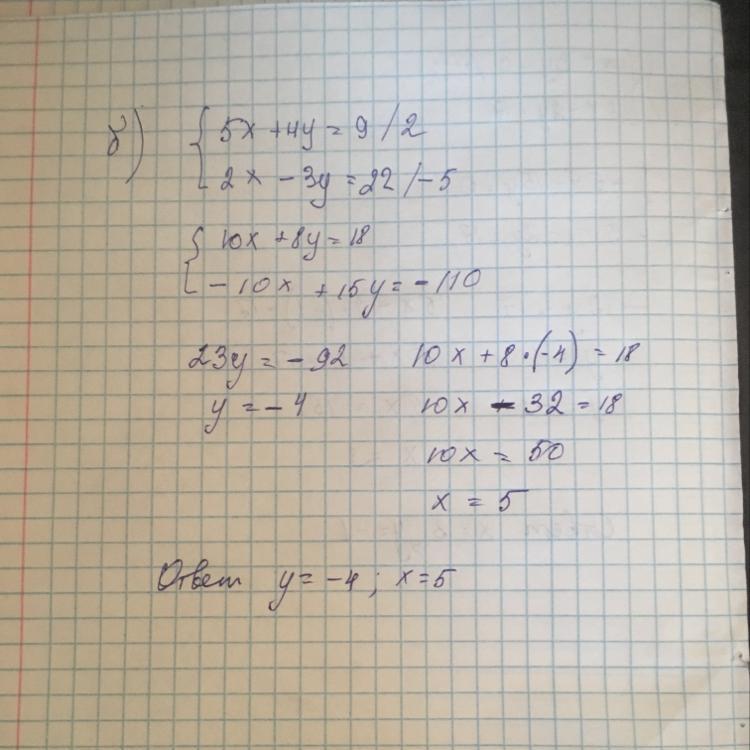 б) { 5x + 4y = 9 / 2
2x - 3y = 22 / -5
{ 10x + 8y = 18
-10x + 15y = -110
23y = -92
y = -4
10x + 8 · (-4) = 18
10x - 32 = 18
10x = 50
x = 5
Ответ y = -4; x = 5